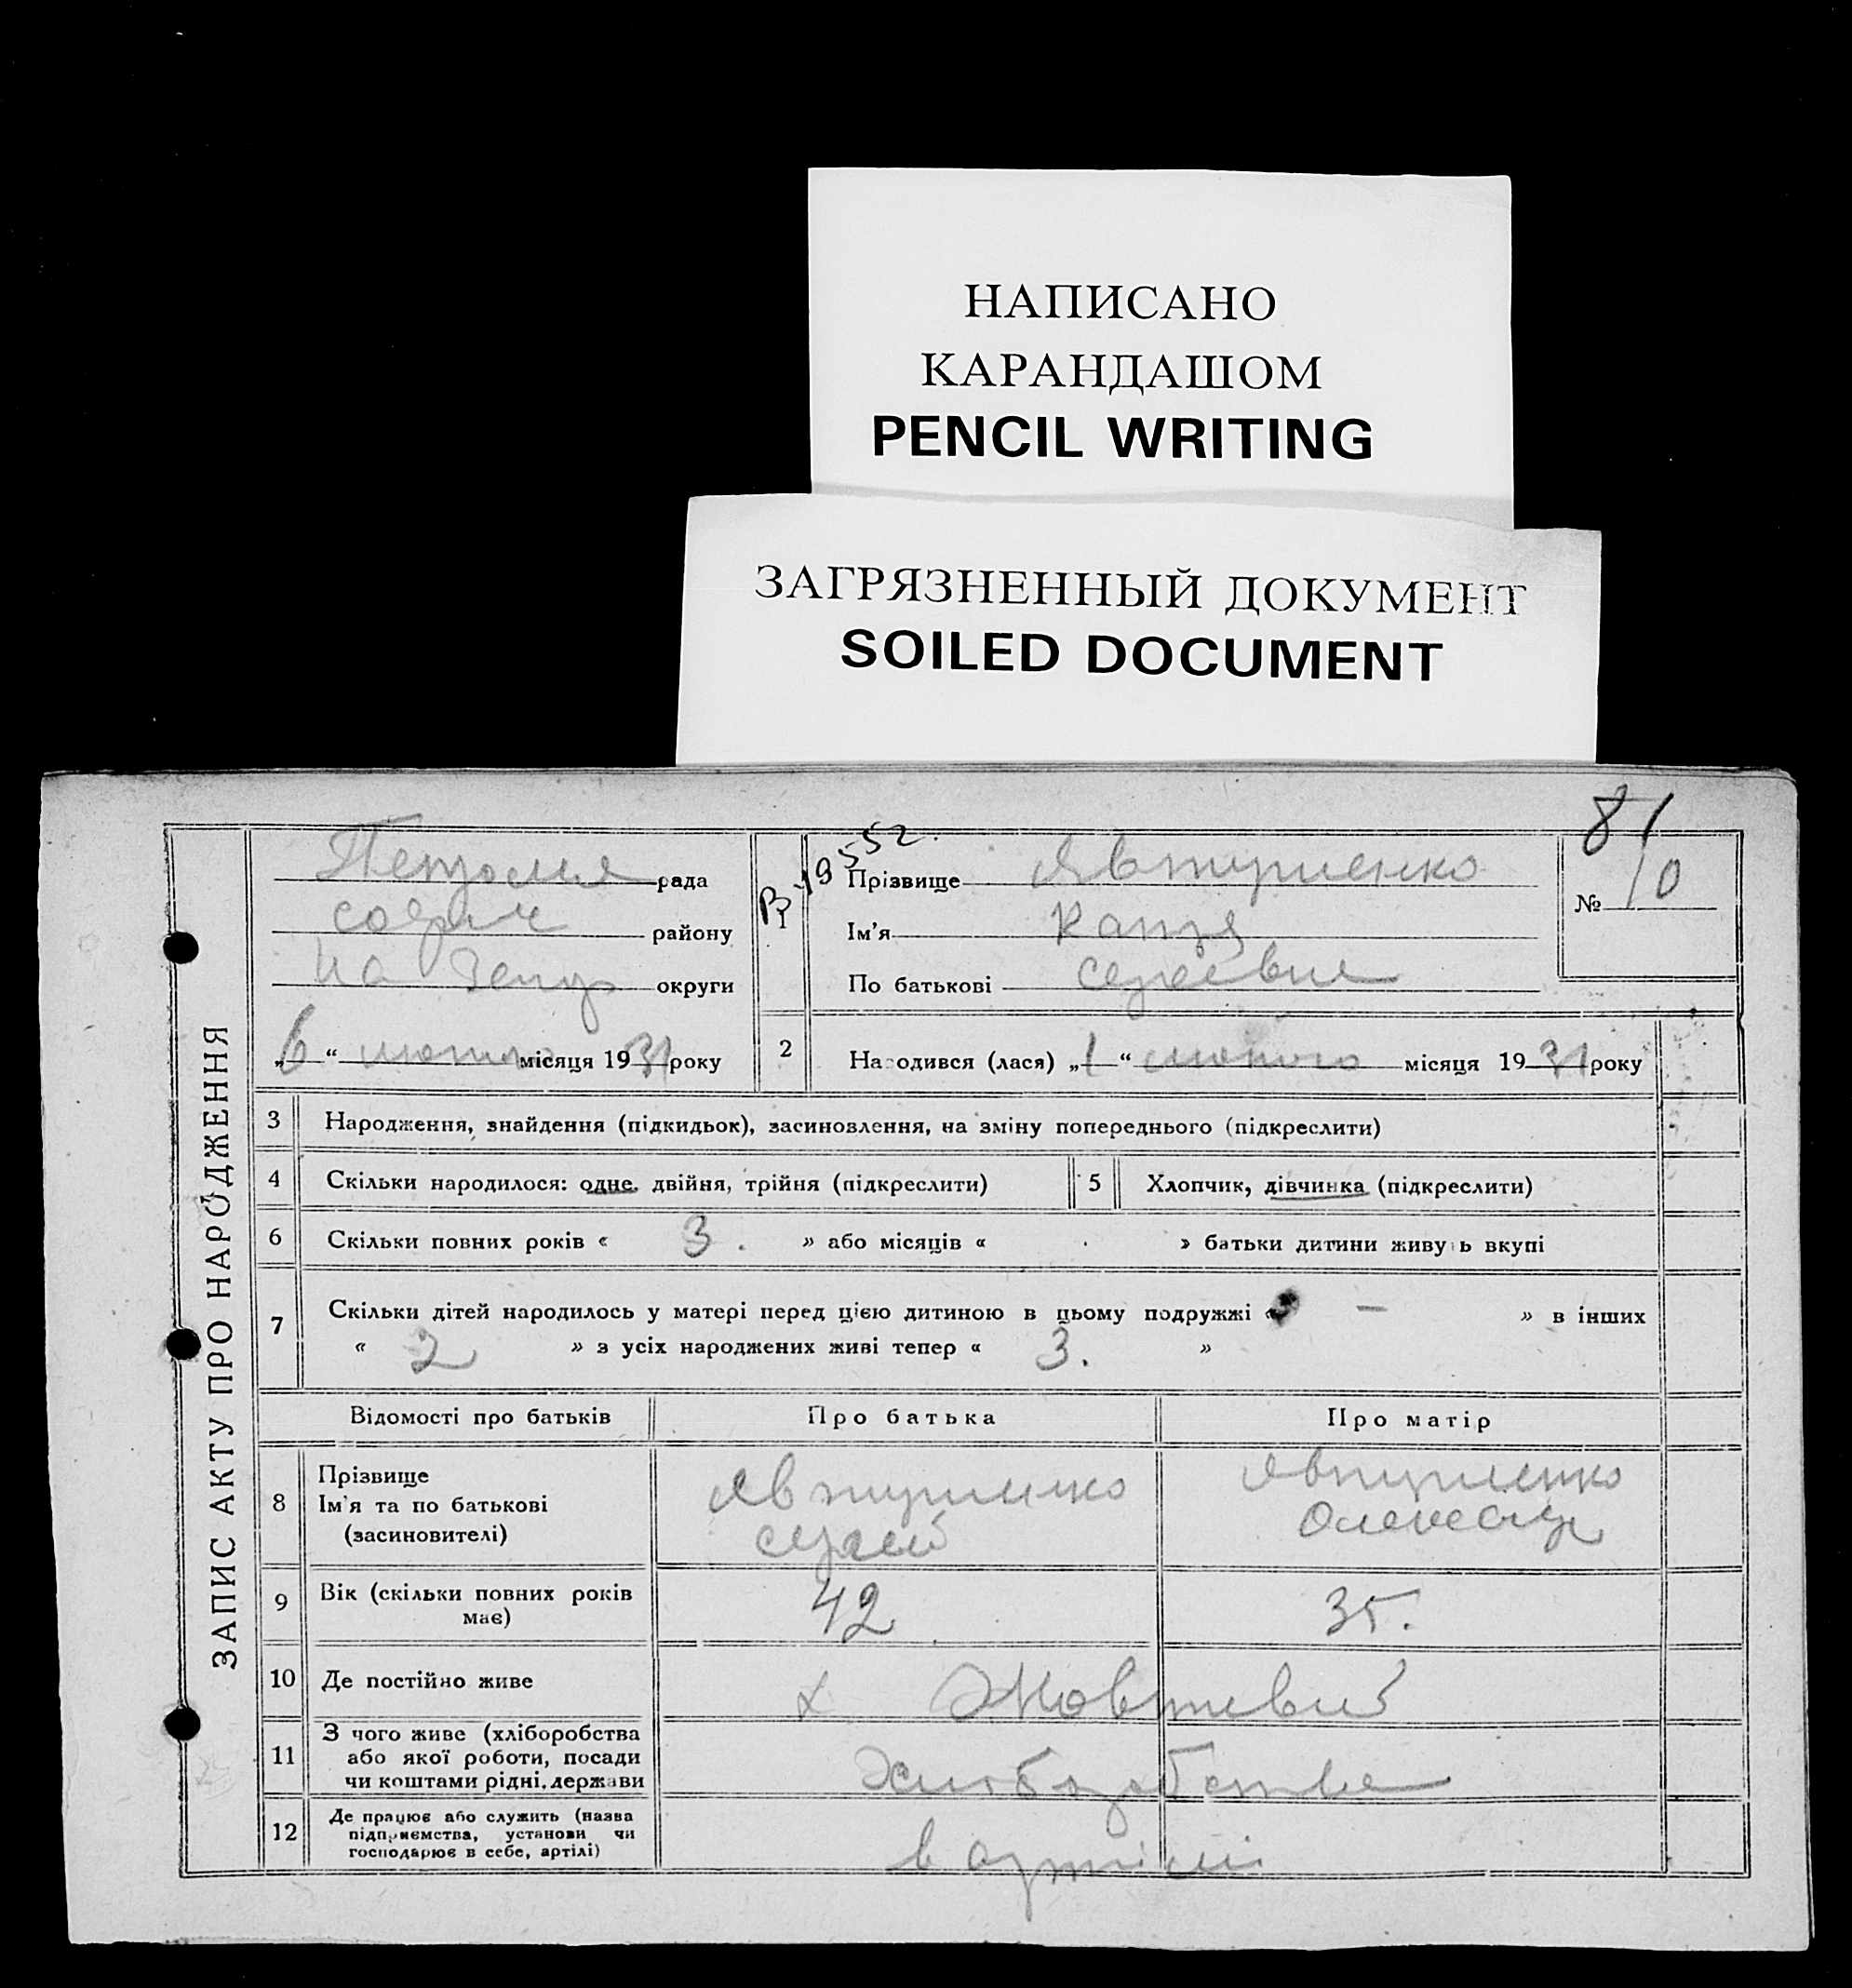 НАПИСАНО
КАРАНДАШОМ
PENCIL WRITING
ЗАГРЯЗНЕННЫЙ ДОКУМЕНТ
SOILED DOCUMENT
81
ЗАПИС АКТУ ПРО НАРОДЖЕННЯ
рада
району
округи
„6“ лютого місяця 1931 року
552.
Прізвище Явтушенко
Ім'я Катя
По батькові Сергеевна
№ 10
2 Народився (лася) „1“ лютого місяця 1931 року
3 Народження, знайдення (підкидьок), засиновлення, на зміну попереднього (підкреслити)
4 Скільки народилося: одне, двійня, трійня (підкреслити) 5 Хлопчик, дівчинка (підкреслити)
6 Скільки повних років « 3. » або місяців « » батьки дитини живуть вкупі
7 Скільки дітей народилось у матері перед цією дитиною в цьому подружжі « — » в інших
« 2 » з усіх народжених живі тепер « 3. »
Відомості про батьків Про батька Про матір
8 Прізвище Явтушенко Явтушенко
Ім'я та по батькові Сергей Олександ
(засиновителі)
9 Вік (скільки повних років має) 42 35.
10 Де постійно живе х Жовтневий
11 З чого живе (хліборобства
або якої роботи, посади
чи коштами рідні, держави Хліборобство
12 Де працює або служить (назва
підприємства, установи чи
господарює в себе, артілі) в артілі